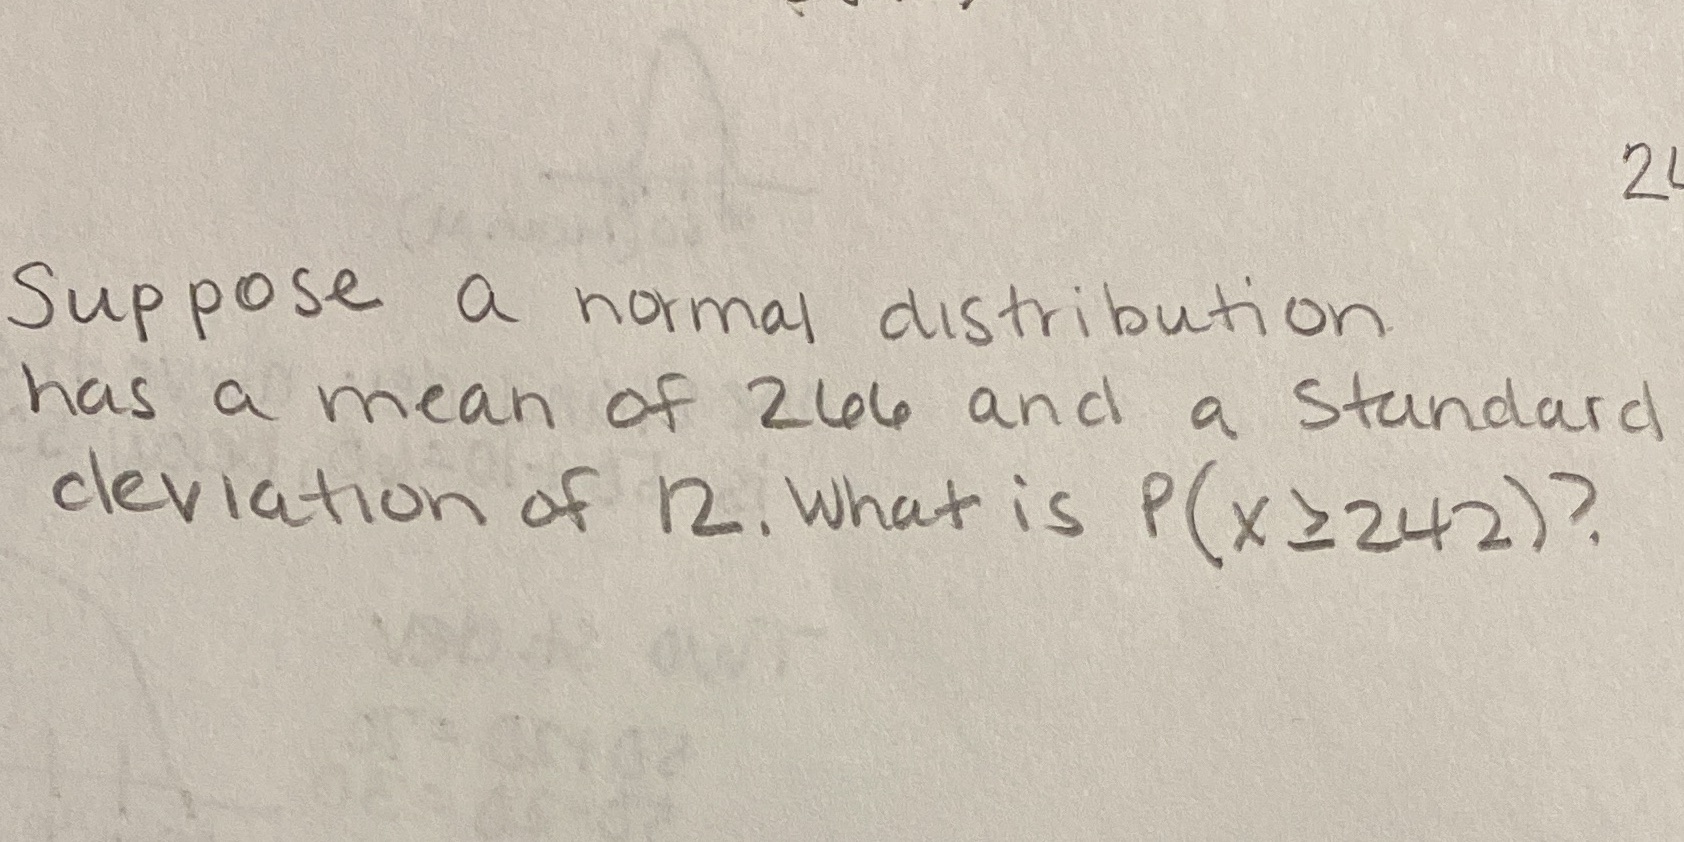 24
Suppose a normal distribution
has a mean of 266 and a standard
deviation of 12. What is P(x≥242)?